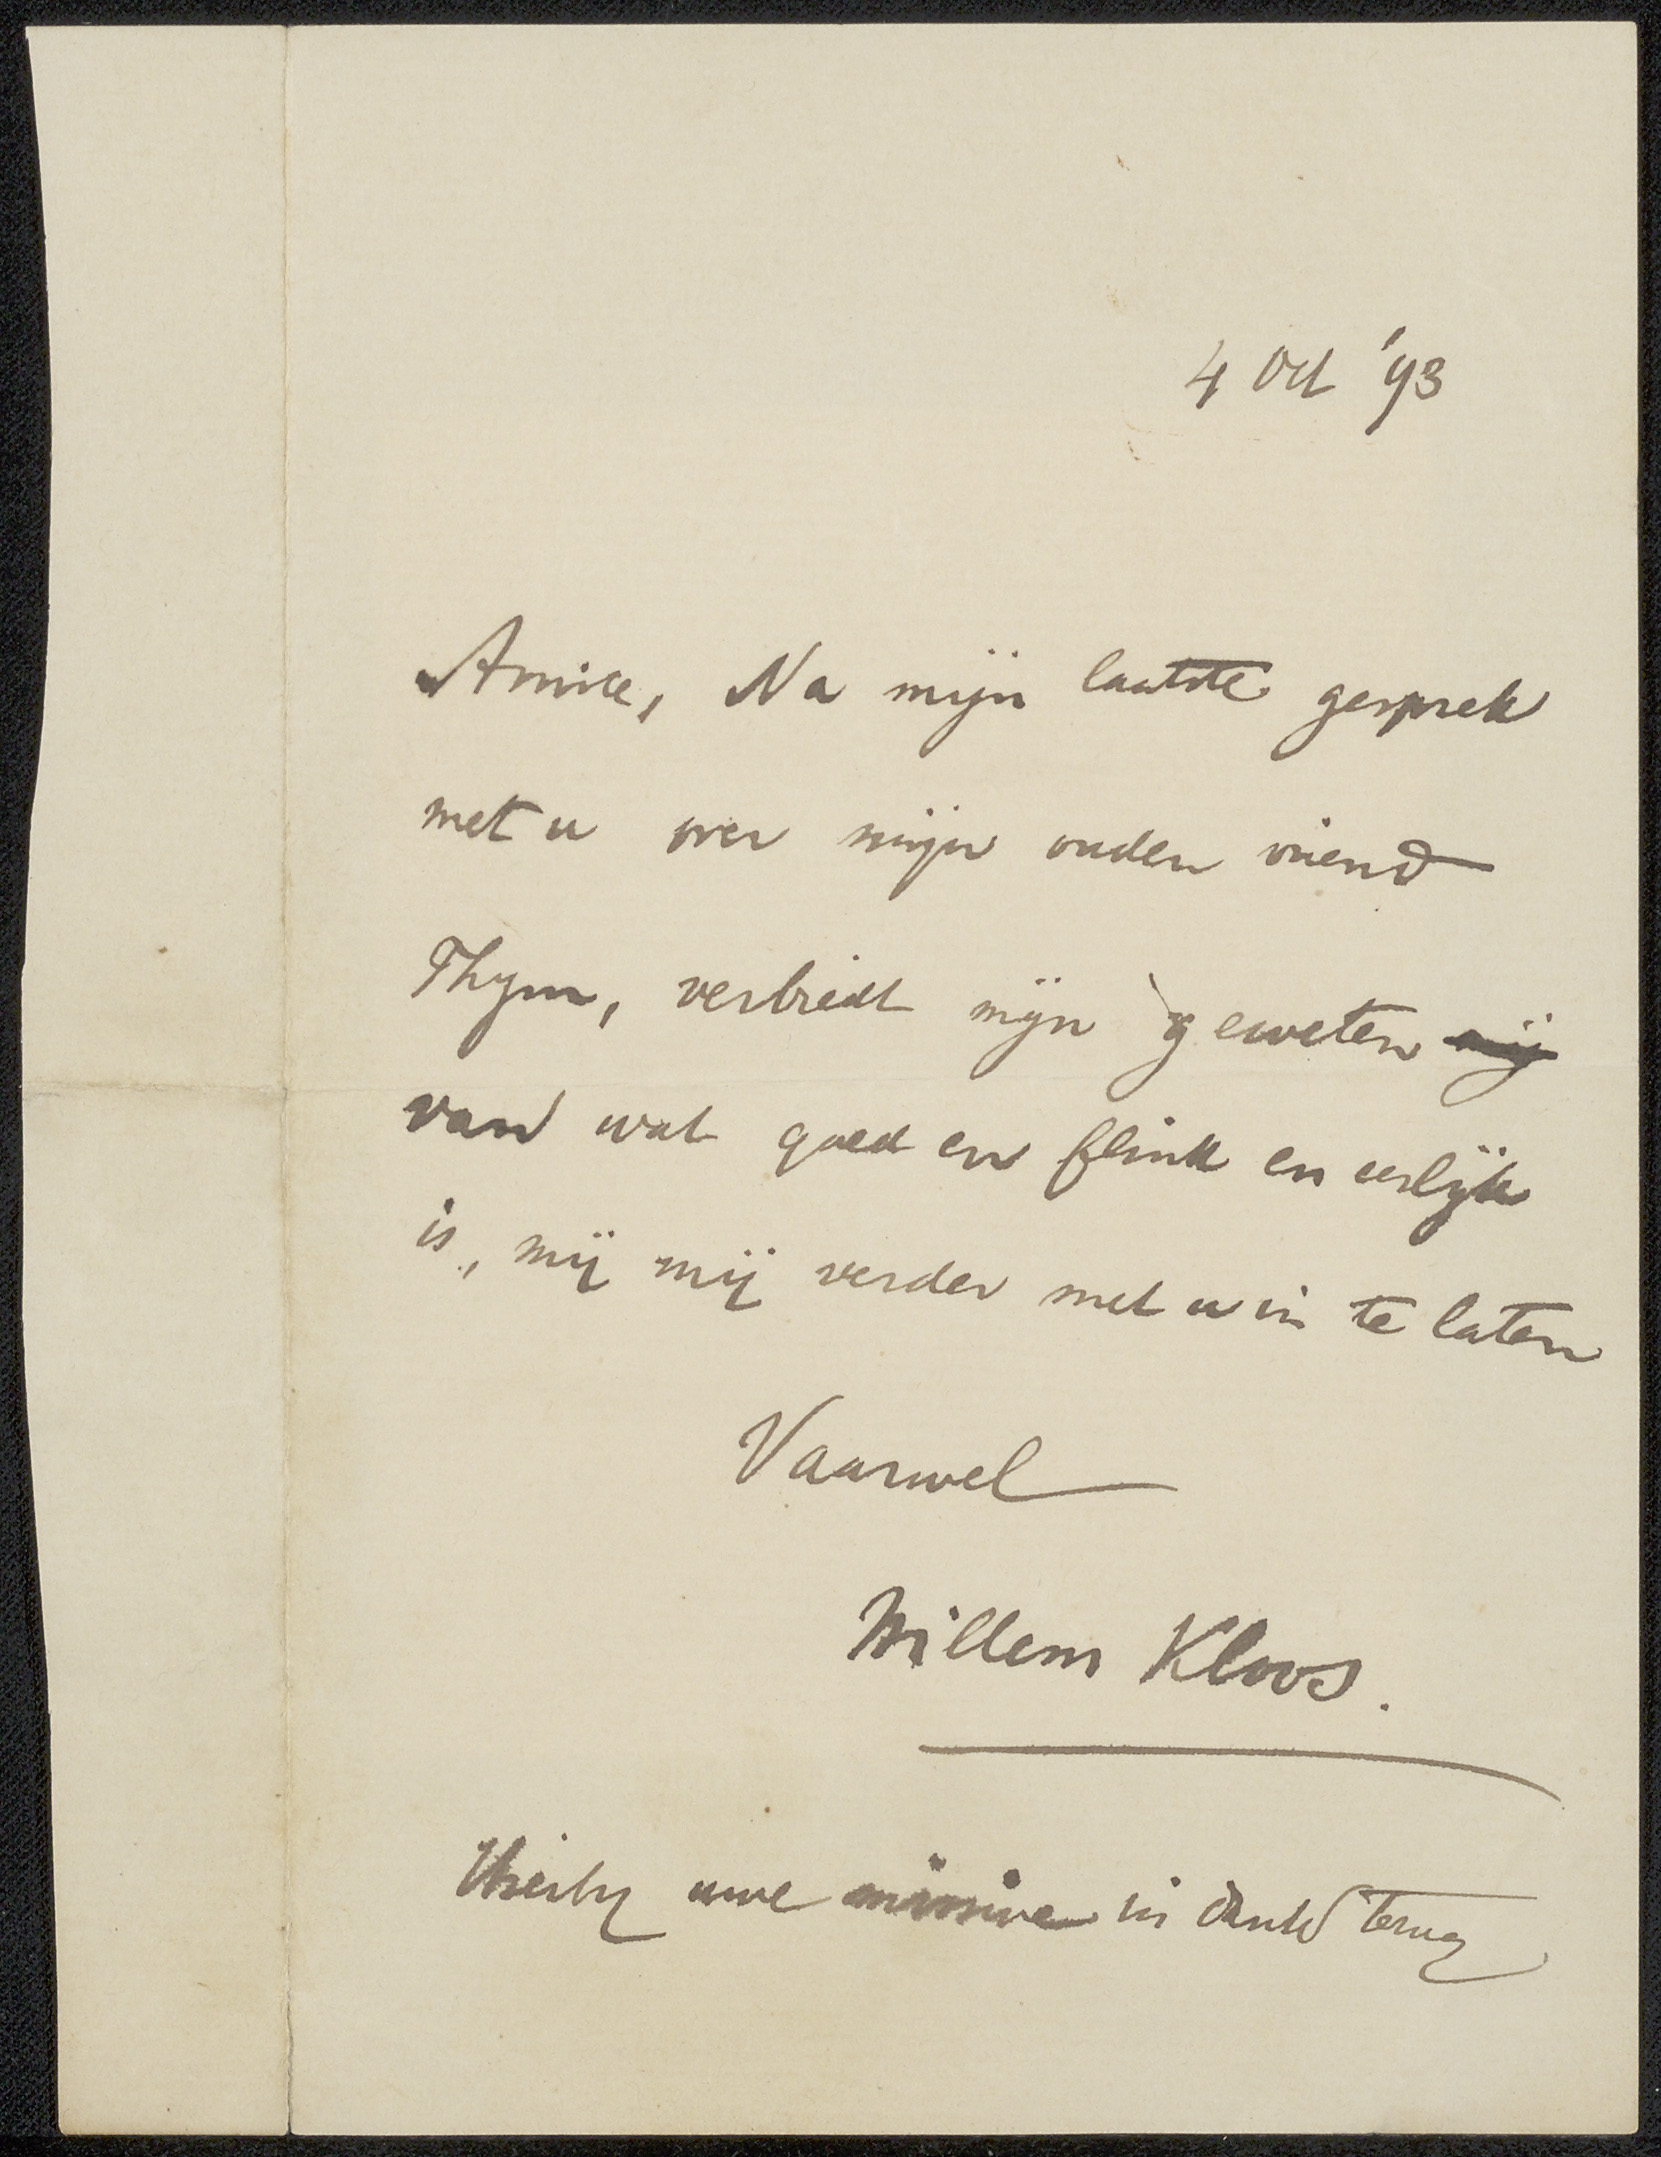 4 Oct '93
Amice, Na mijn laatste gesprek
met u over mijn ouden vriend
Thym, verbiedt mijn geweten mij
van wat goed en flink en eerlijk
is, mij mij verder met u in te laten
Vaarwel
Willem Kloos.
Hierbij uwe missive in dank terug